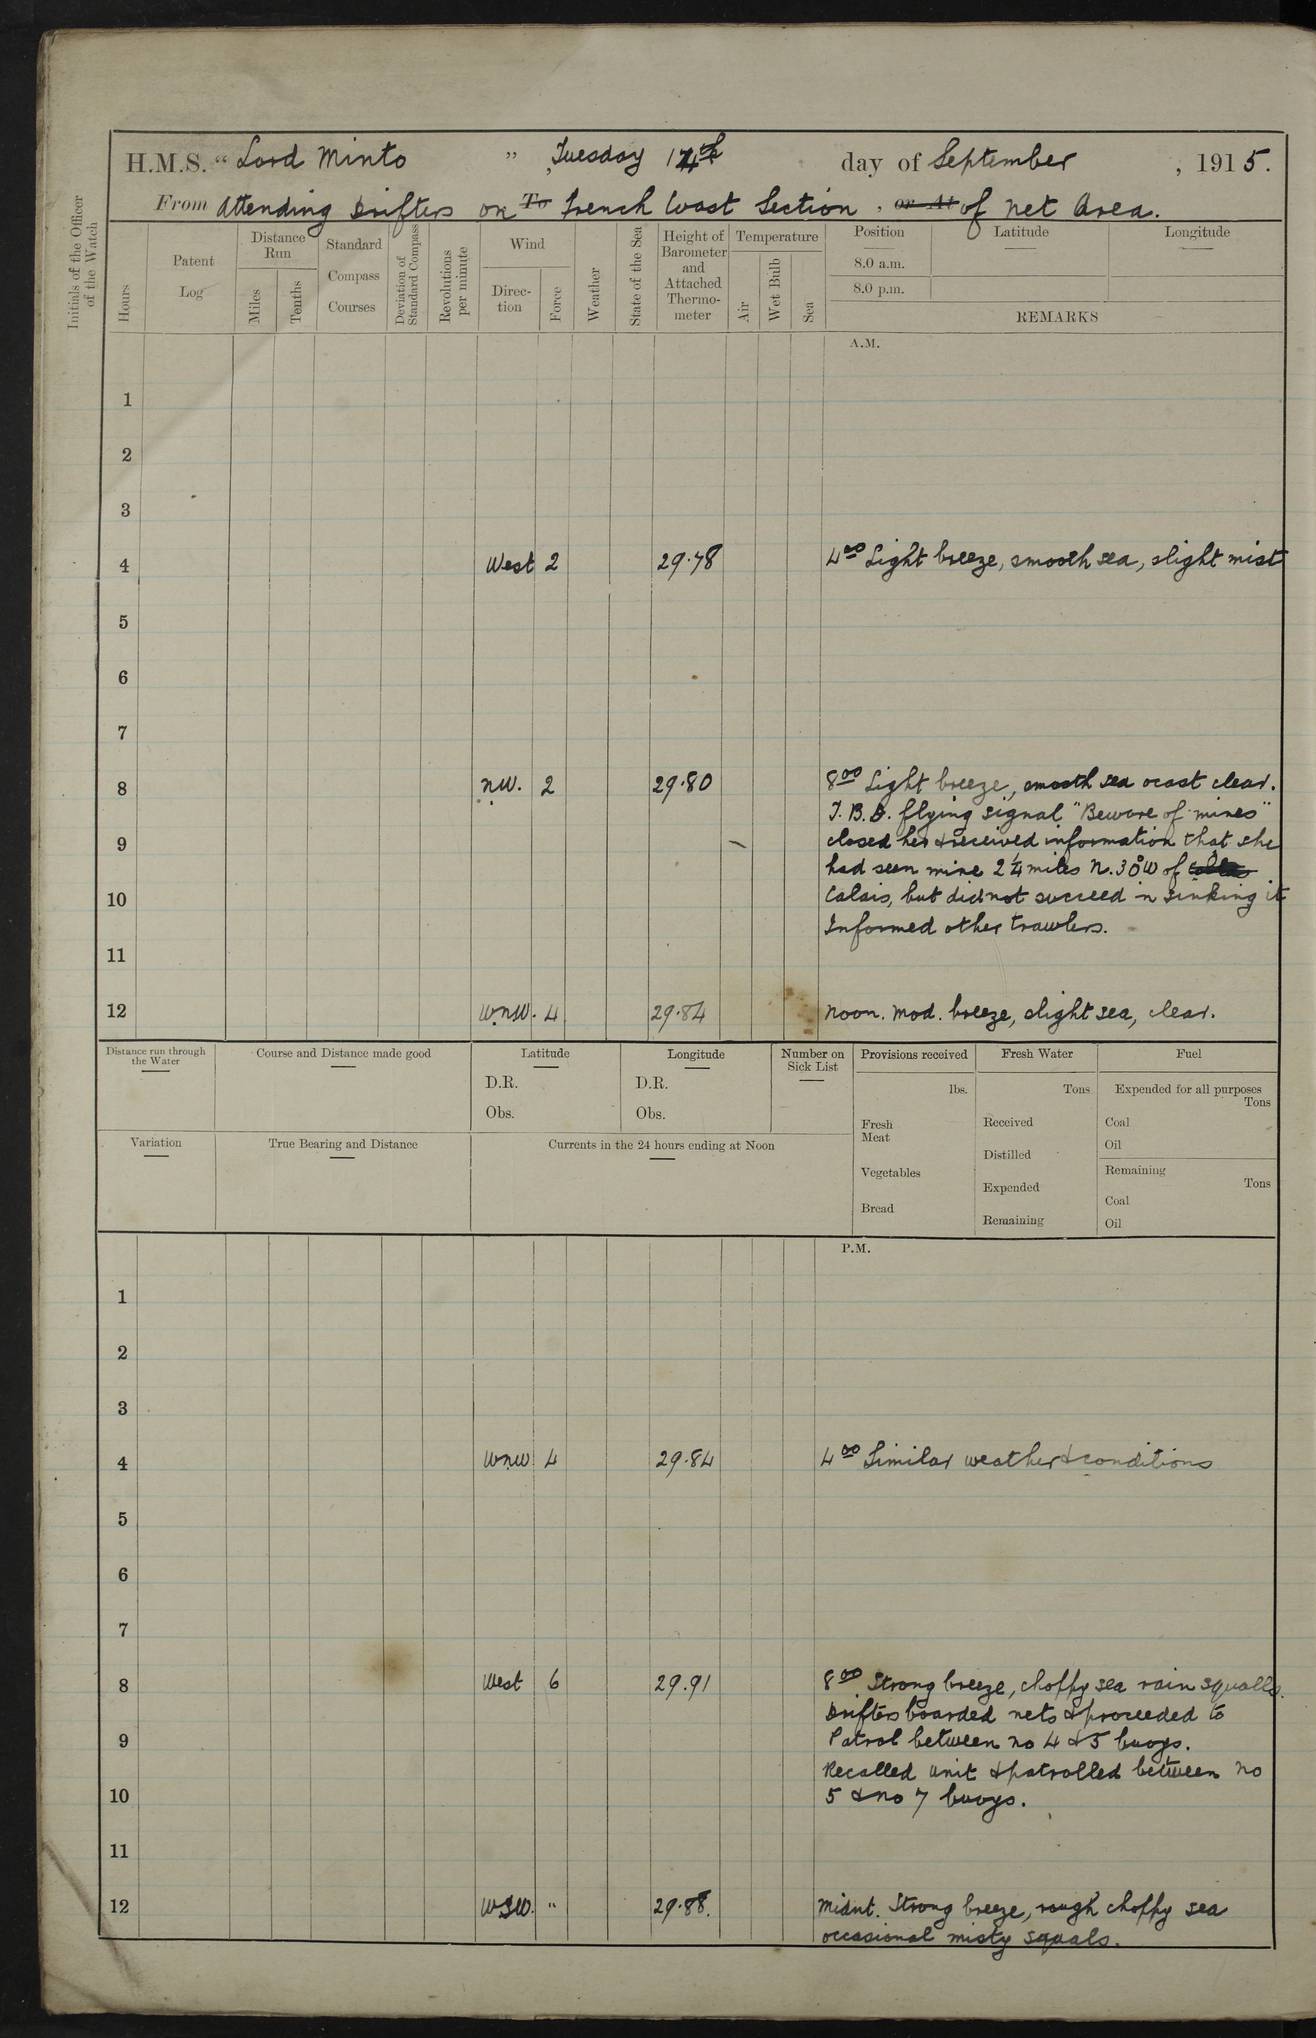 H.M.S. " Lord Minto ", Tuesday 14th day of September, 1915.
From Attending Drifters on To French Coast Section, or At of Net Area.
Initials of the Officer of the Watch
Hours
Patent Log
Distance Run
Miles
Tenths
Standard Compass Courses
Deviation of Standard Compass
Revolutions per minute
Wind
Direction
Force
Weather
State of the Sea
Height of Barometer and Attached Thermometer
Temperature
Air
Wet Bulb
Sea
Position Latitude Longitude
8.0 a.m.
8.0 p.m.
REMARKS
A.M.
1
2
3
4 West 2 29.78 4.00 Light breeze, smooth sea, slight mist
5
6
7
8 NW. 2 29.80 8.00 Light breeze, smooth sea ocast clear.
T.B.D. flying signal "Beware of mines"
9 closed her & received information that she
had seen mine 2 1/4 miles N.30°W of
10 Calais, but did not succeed in sinking it
Informed other trawlers.
11
12 WNW. 4 29.84 Noon. Mod. breeze, slight sea, clear.
Distance run through the Water
Course and Distance made good
Latitude
D.R.
Obs.
Longitude
D.R.
Obs.
Number on Sick List
Provisions received
lbs.
Fresh Meat
Vegetables
Bread
Fresh Water
Tons
Received
Distilled
Expended
Remaining
Fuel
Expended for all purposes
Tons
Coal
Oil
Remaining
Tons
Coal
Oil
Variation
True Bearing and Distance
Currents in the 24 hours ending at Noon
P.M.
1
2
3
4 WNW 4 29.84 4.00 Similar weather & conditions
5
6
7
8 West 6 29.91 8.00 Strong breeze, choppy sea rain squalls.
Drifters boarded nets & proceeded to
9 Patrol between no 4 & 5 buoys.
Recalled unit & patrolled between no
10 5 & no 7 buoys.
11
12 WSW. " 29.88. Midnt. Strong breeze, rough choppy sea
occasional misty squals.